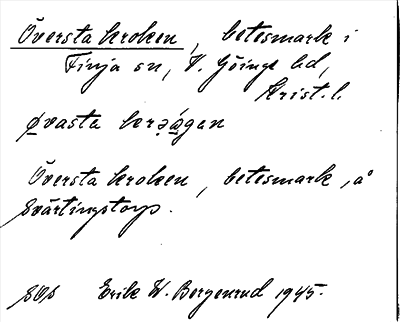 Översta kroken, betesmark i
Finja sn, V. Göinge hd,
Krist. l.
Översta kroken, betesmark, å
Svärtingstorp.
Erik W. Bergenrud 1945.